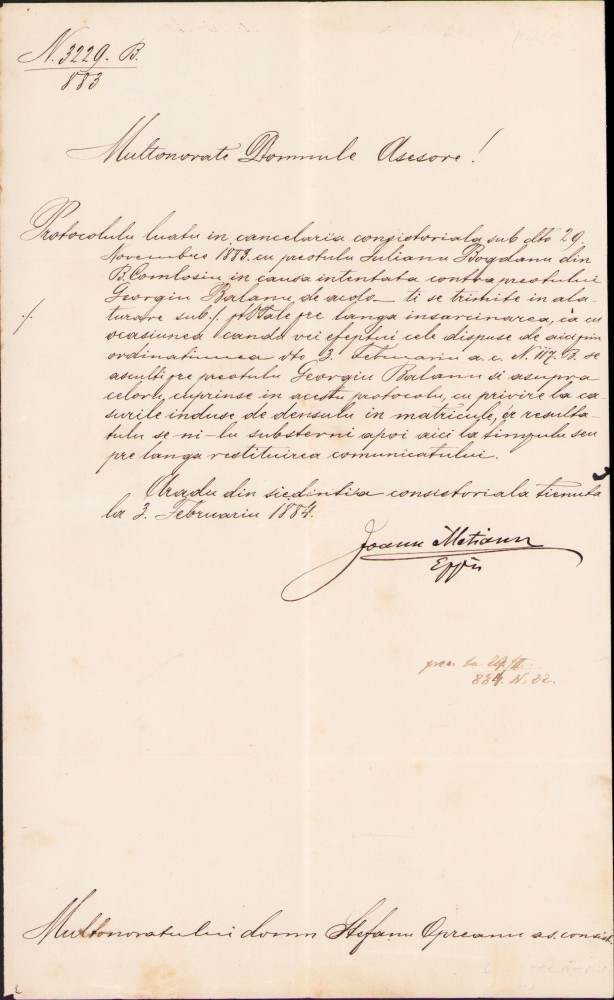 N. 3229. B.
883
Multonorate Domnule Asesore!
Protocolulu luatu in cancelari'a consistoriala sub dto 29.
Novembre 1883. cu preotulu Iulianu Bogdanu din
B. Comlosiu, in causa intentata contra preotului
Georgiu Balanu, de acolo ti se trimite in ala-
turare sub ./. pre langa insarcinarea, ca cu
ocasiunea candu vei efeptui cele dispuse de aici prin
ordinatiunea dto 3. Februariu a. c. N. 117. B. se
asculti pre preotulu Georgiu Balanu si asupra
celorlu cuprinse in acestu protocolu, cu privire la ca-
surile induse de densulu in matricule, er resulta-
tulu se ni-lu substerni apoi aici la timpulu seu
pre langa restituirea comunicatului.
./.
Aradu din siedinti'a consistoriala tienuta
la 3. Februariu 1884.
Joanu Metianu
Eppu
pres. la 29/II.
884. N. 22.
Multonoratului domn Stefanu Opreanu as. consist.